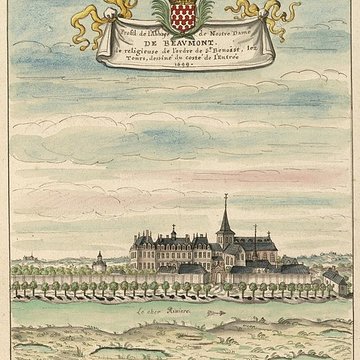 Profil de l'Abbaye de Nostre Dame
DE BEAUMONT.
de religieuse de l'ordre de St Benoist, lez
Tours, dessiné du costé de l'Entrée
1699.
Le cher Riviere.